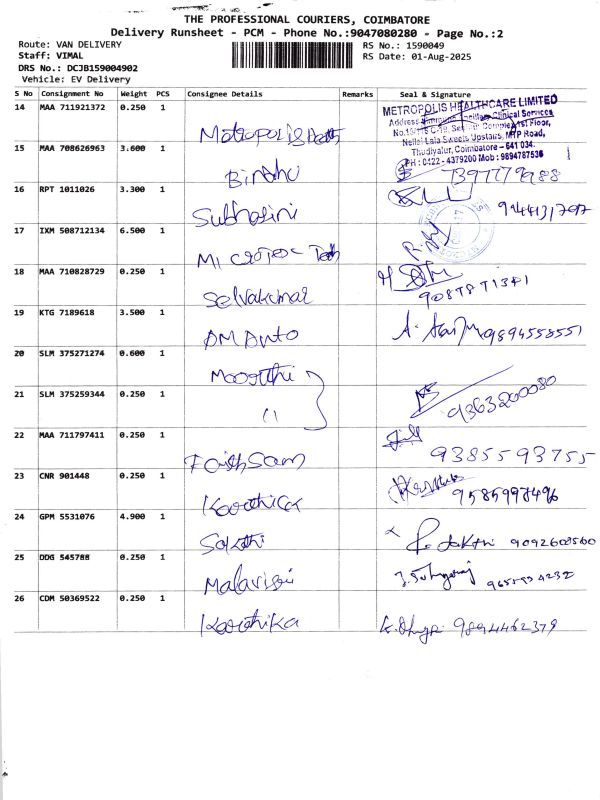 THE PROFESSIONAL COURIERS, COIMBATORE
Delivery Runsheet - PCM - Phone No.:9047080280 - Page No.:2
Route: VAN DELIVERY
RS No.: 1590049
Staff: VIMAL
RS Date: 01-Aug-2025
DRS No.: DCJB159004902
Vehicle: EV Delivery
S No Consignment No Weight PCS Consignee Details Remarks Seal & Signature
14 MAA 711921372 0.250 1
METROPOLIS HEALTHCARE LIMITED
Clinical Services
1st Floor,
Nellai Lala Sweets Upstairs, MTP Road,
Thudiyalur, Coimbatore - 641 034.
PH : 0422 - 4379200 Mob : 9894787536
15 MAA 708626963 3.600 1
Bindhu
16 RPT 1011026 3.300 1
Subhasini
17 IXM 508712134 6.500 1
18 MAA 710828729 0.250 1
Selvakumar
19 KTG 7189618 3.500 1
AM Auto 9894558551
20 SLM 375271274 0.600 1
Moorthi
21 SLM 375259344 0.250 1
11 9363200080
22 MAA 711797411 0.250 1
Faith Sam 9385593755
23 CNR 901448 0.250 1
Karthick 9585997496
24 GPM 5531076 4.900 1
Sakthi P. Sakthi 9092600500
25 DDG 545788 0.250 1
26 CDM 50369522 0.250 1
Karthika 9894462379